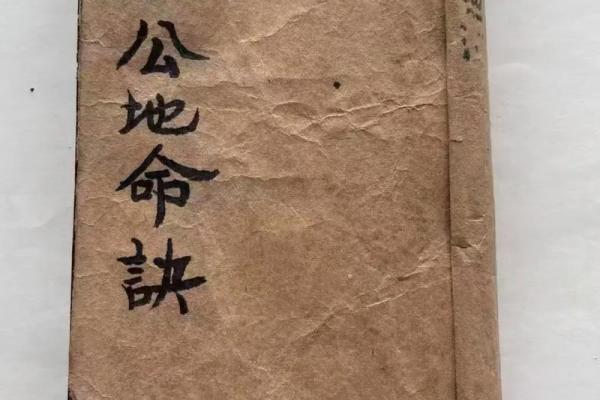 公地命訣